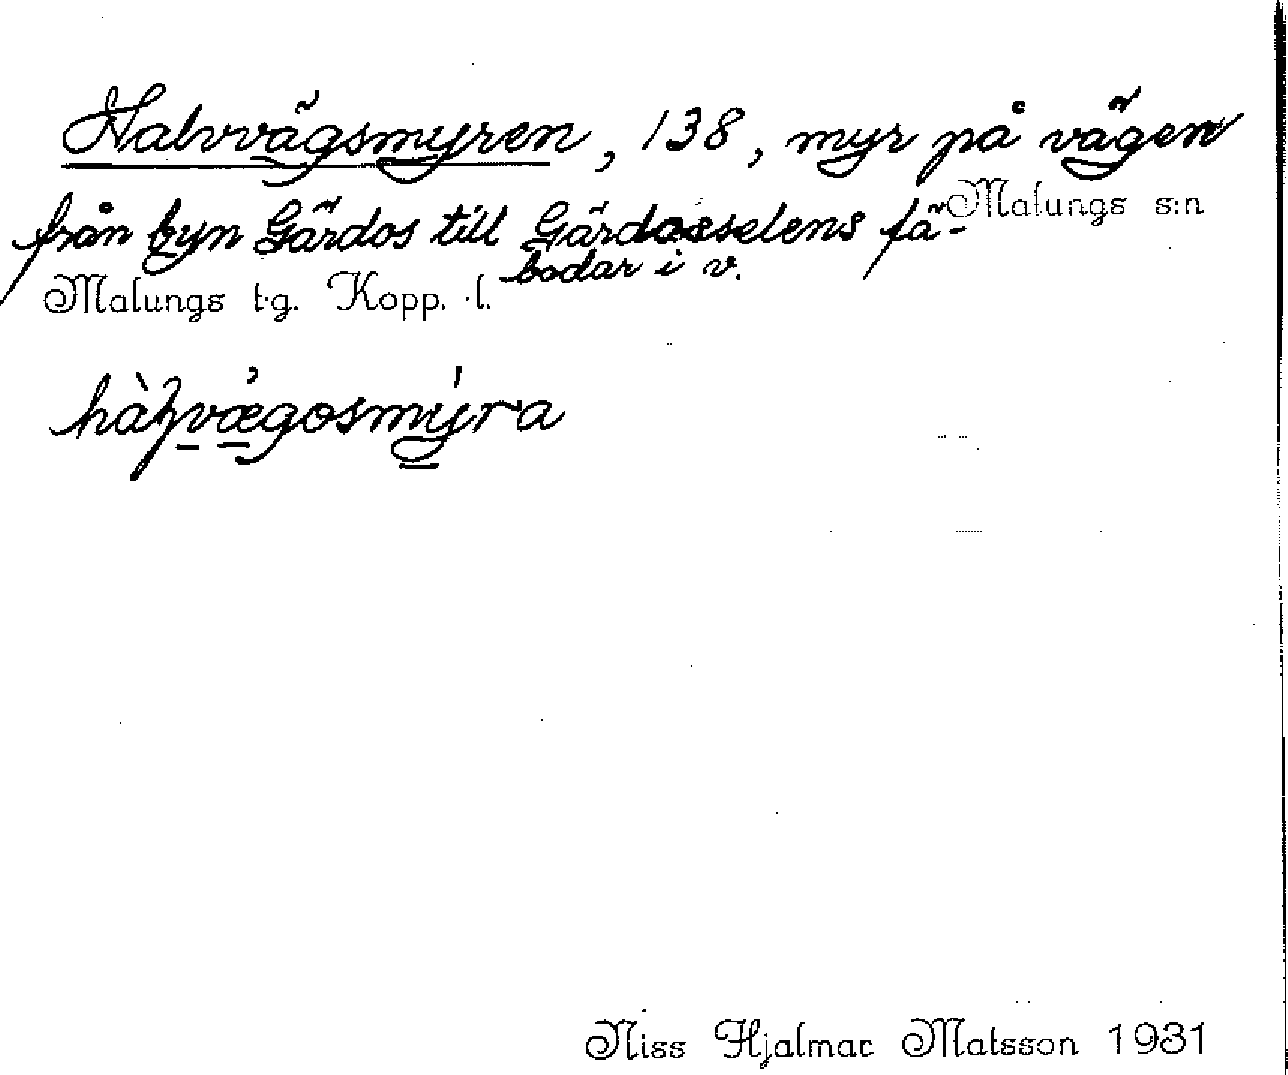 Halvvägsmyren, 138, myr på vägen
Malungs s:n
från byn Gärdos till Gärdosselens fä-
bodar i v.
Malungs t.g. Kopp. l.
Niss Hjalmar Matsson 1931